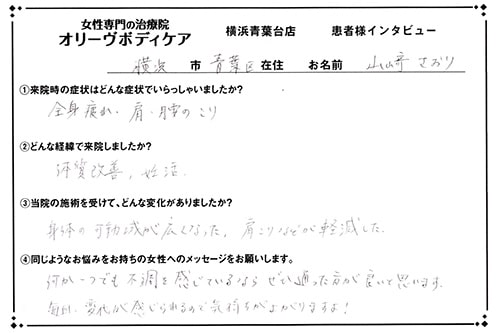 女性専門の治療院
オリーヴボディケア
横浜青葉台店
患者様インタビュー
横浜 市 青葉区 在住 お名前 山崎 さおり
①来院時の症状はどんな症状でいらっしゃいましたか?
全身疲れ、肩・腰のこり
②どんな経緯で来院しましたか?
体質改善、妊活
③当院の施術を受けて、どんな変化がありましたか?
身体の可動域が広くなった。肩こりなどが軽減した。
④同じようなお悩みをお持ちの女性へのメッセージをお願いします。
何か一つでも不調を感じているならぜひ通った方が良いと思います。
毎回、変化が感じられるので気持ちが上がりますよ!